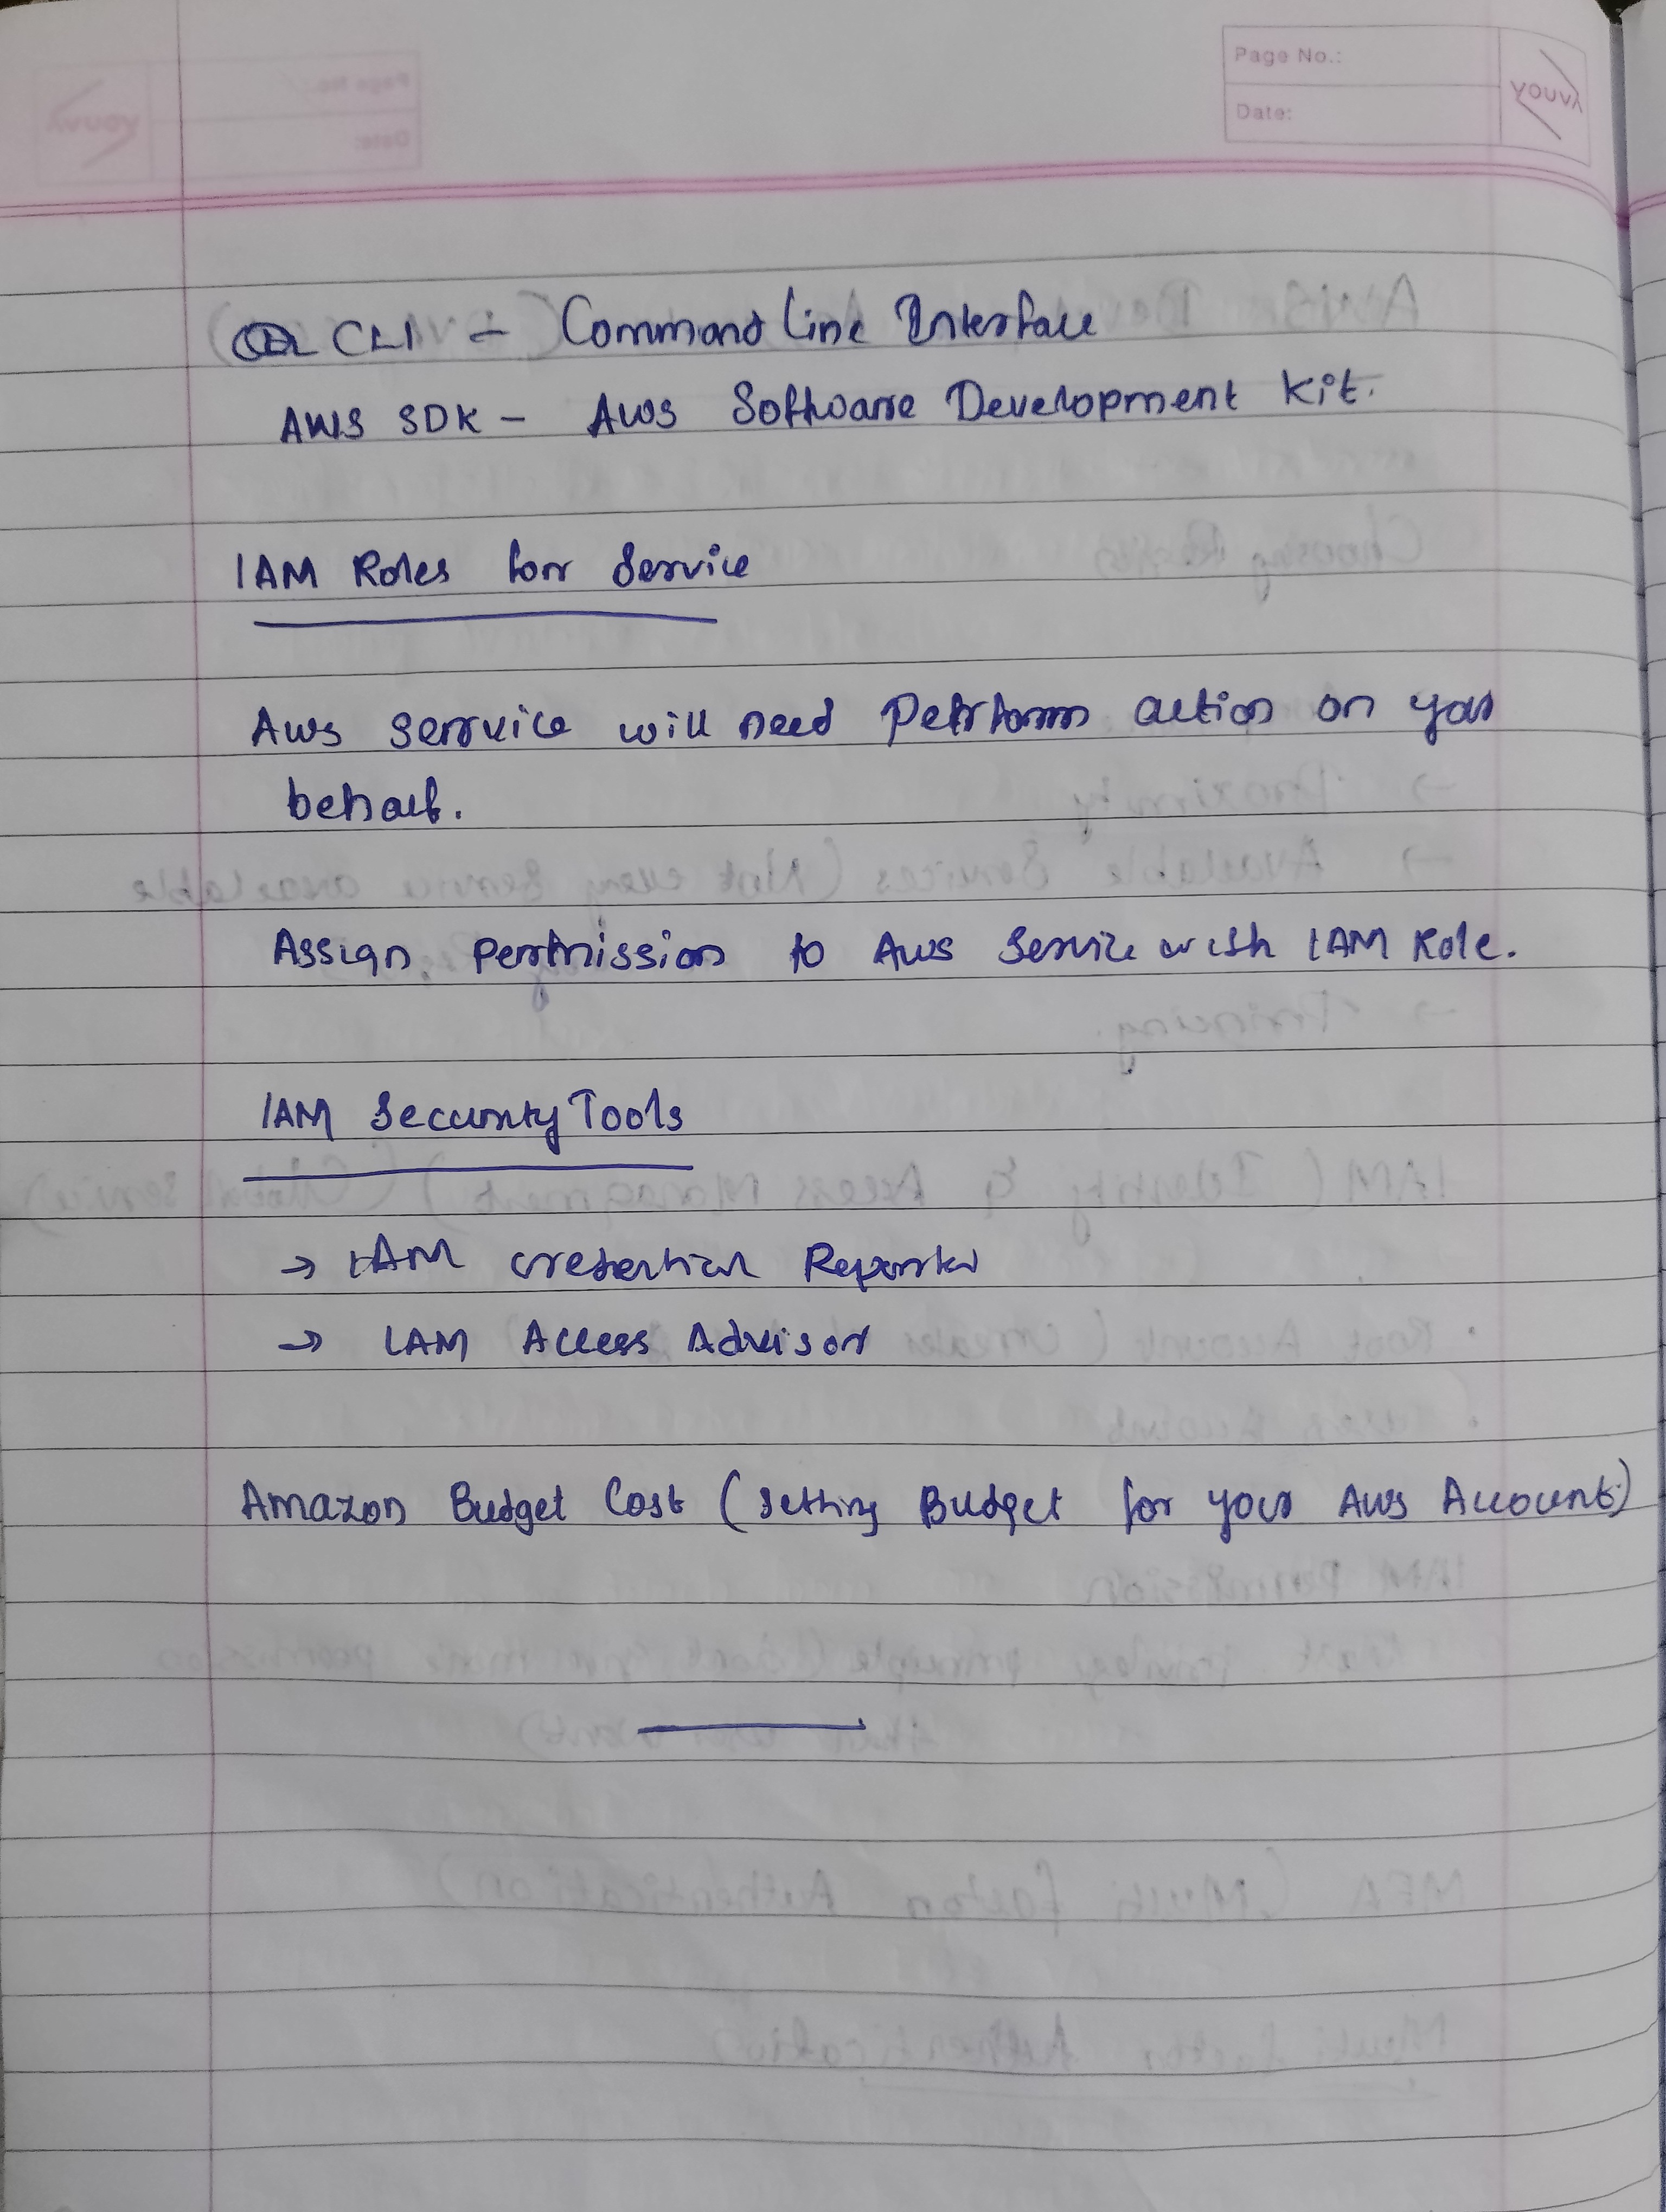 Page No.:
Date:
YOUVA
CLI - Command Line Interface
AWS SDK - AWS Software Development Kit.
IAM Roles for Service
Aws service will need Perform action on your
behalf.
Assign permission to AWS Service with IAM Role.
IAM Security Tools
→ IAM credential Reports
→ IAM Access Advisor
Amazon Budget Cost (Setting Budget for your AWS Account)